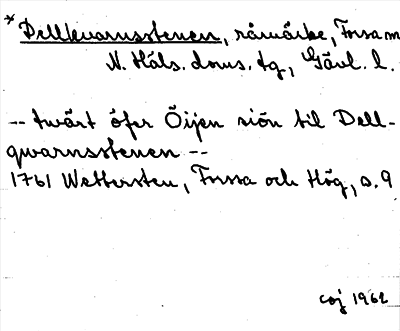 *Dellkvarnsstenen, råmärke, Forsa m
N. Häls. doms. tg, Gävl. l.
-- twärt öfer Öijen siön til Dell-
qwarnsstenen --
1761 Wettersten, Forssa och Hög, s. 9
coj 1962